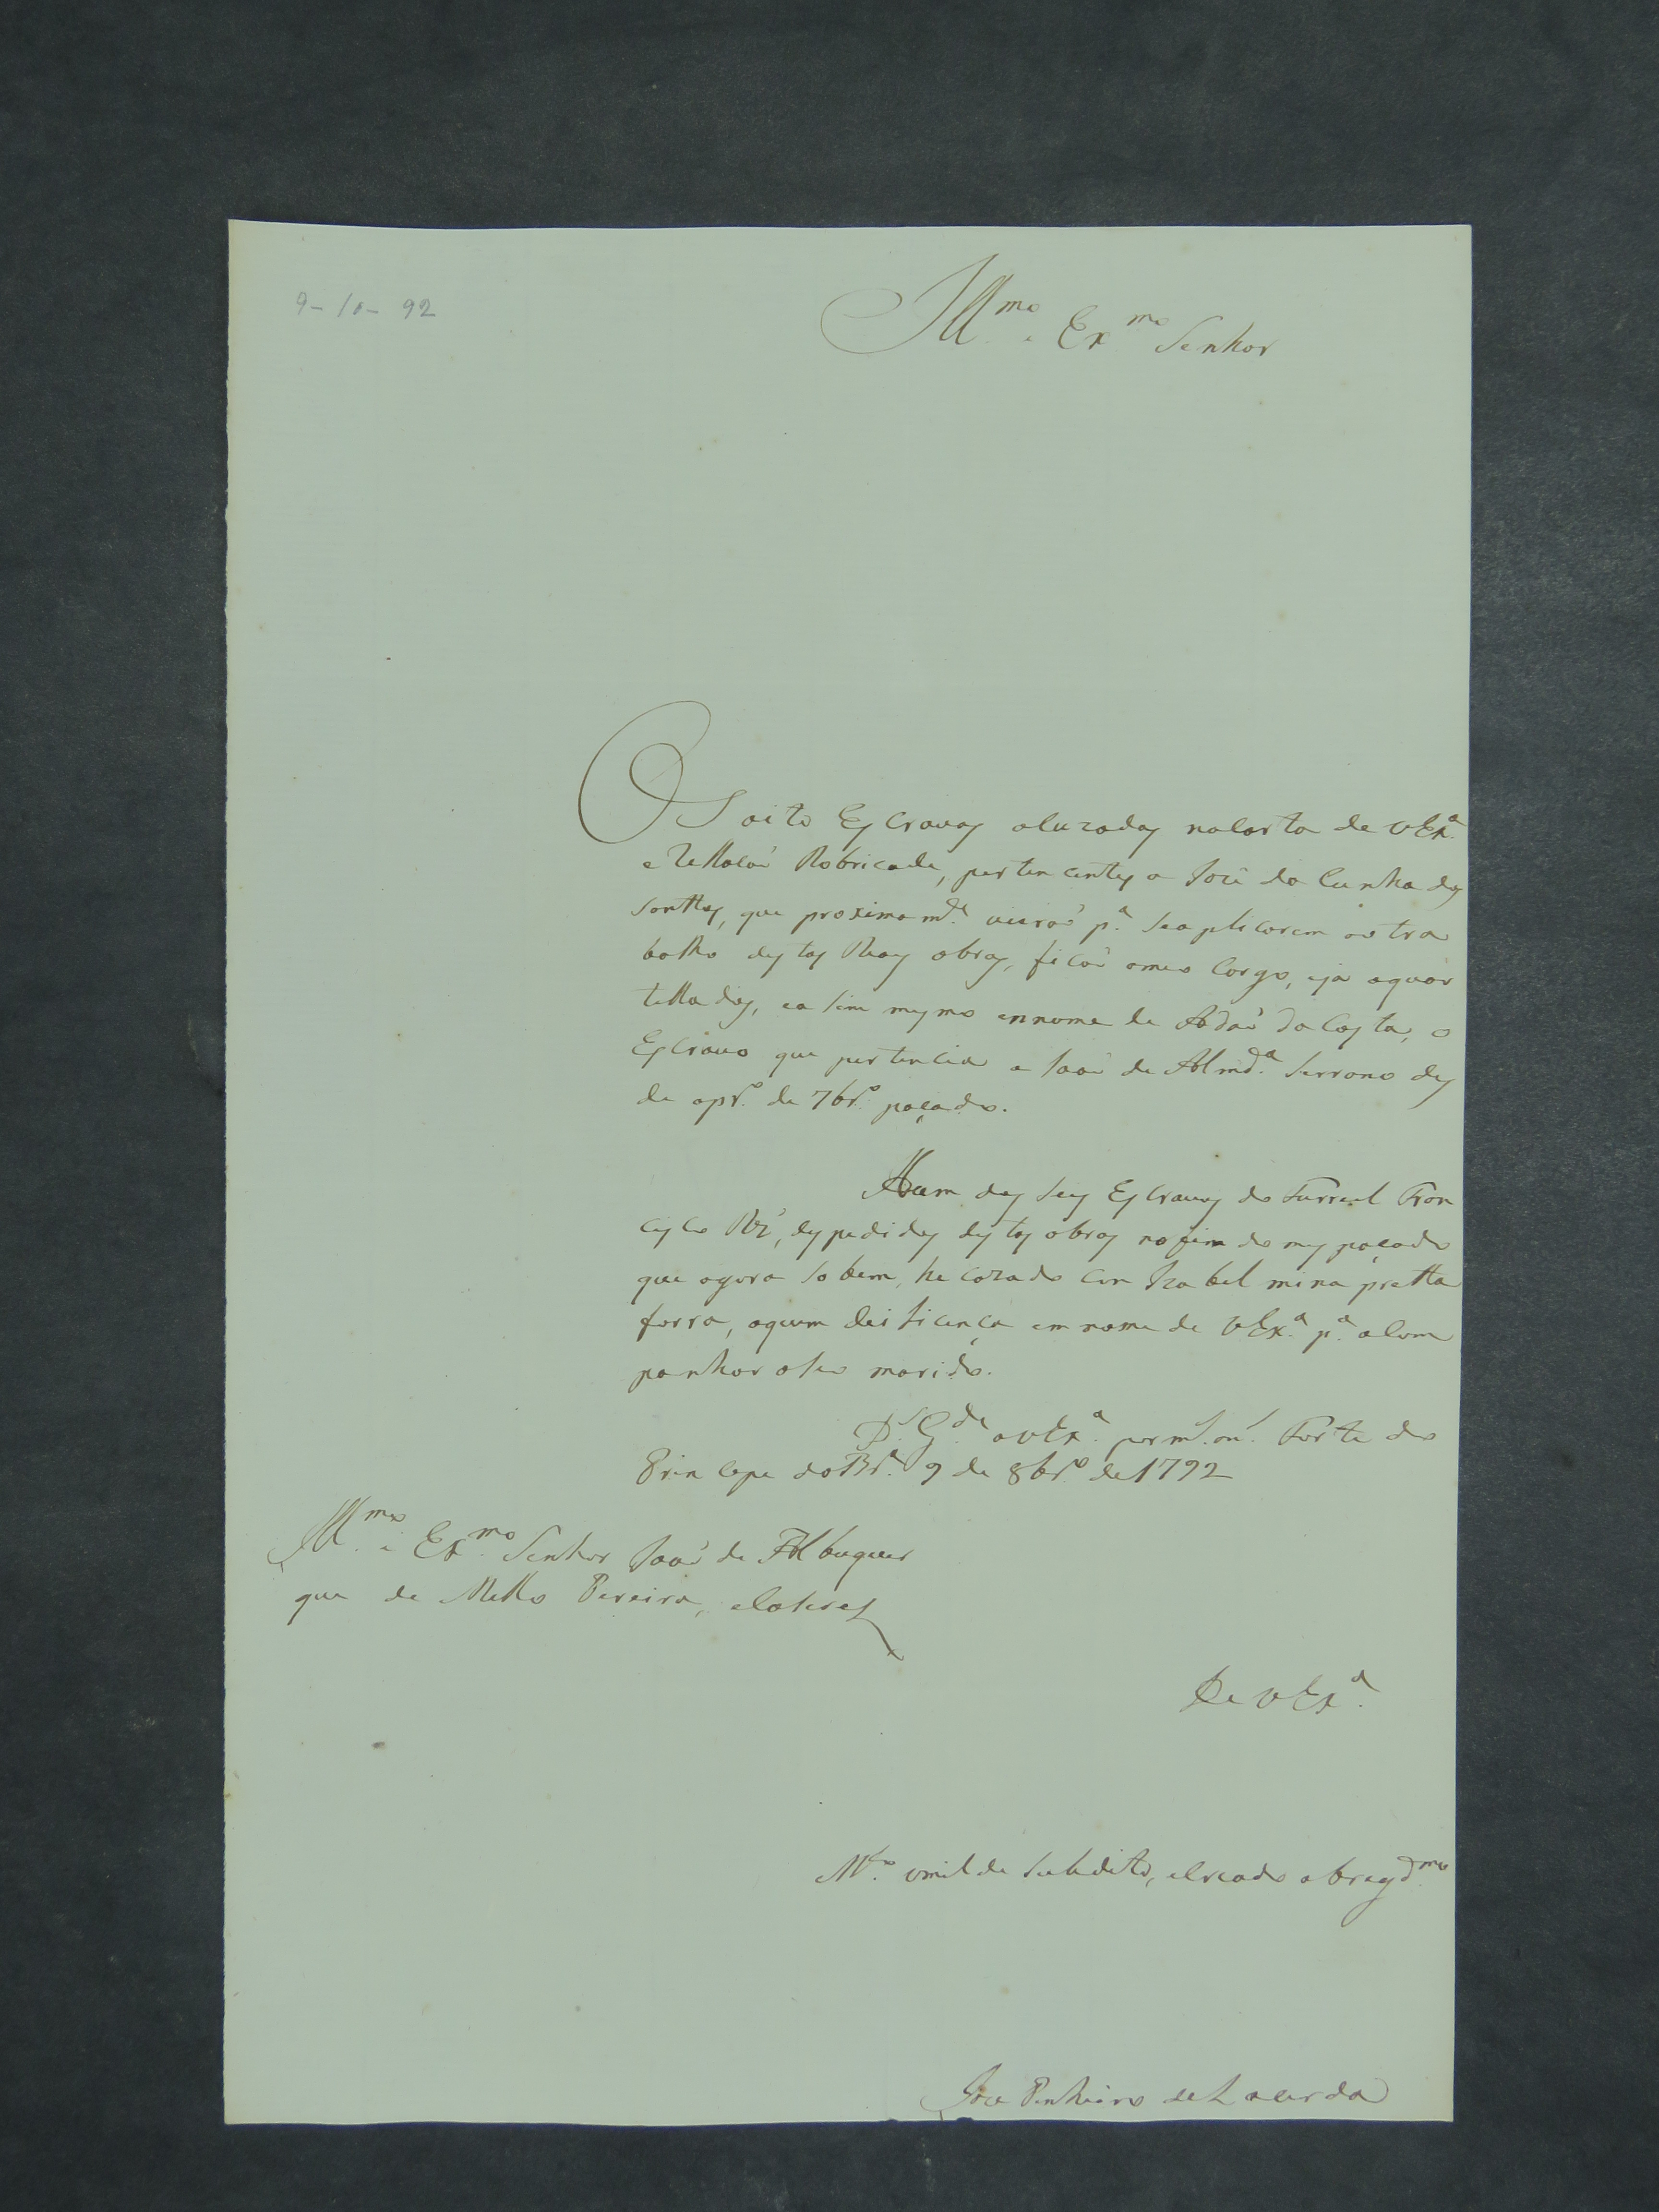 9-10-92
Ill.mo e Ex.mo Senhor
Os oito Escravos aluzados na Carta de V Ex.ª
e Rellaçaõ Robricada, pertencentes a Joze da Cunha dos
Santtos, que proximam.te vieraõ p.ª se aplicarem ao tra
balho destas Reaes obras, ficaõ a meo Cargo, e ja aquar
tellados, e asim mesmo em nome de Adaõ da Costa, o
Escravo que pertencia a Joaõ de Almd.ª Serrano des
de o pr.º de 7br.º paçado.
Hum dos seis Escravos do Furriel Fran
cisco Roiz, despedidos destas obras no fim do mes paçado
que agora sobem, he cazado com Izabel mina pretta
forra, a quem dei licença em nome de V Ex.ª p.ª acom
panhar o seo marido.
D.s G.de a V Ex.ª por m.s an.s Forte do
Principe da Br.ª 9 de 8br.º de 1792
Ill.mo e Ex.mo Senhor Joaõ de Albuquer
que de Mello Pereira, e Caseres
De V Ex.ª
M.to omilde Subdito, e Creado obrigd.mo
Joze Pinheiro de Lacerda